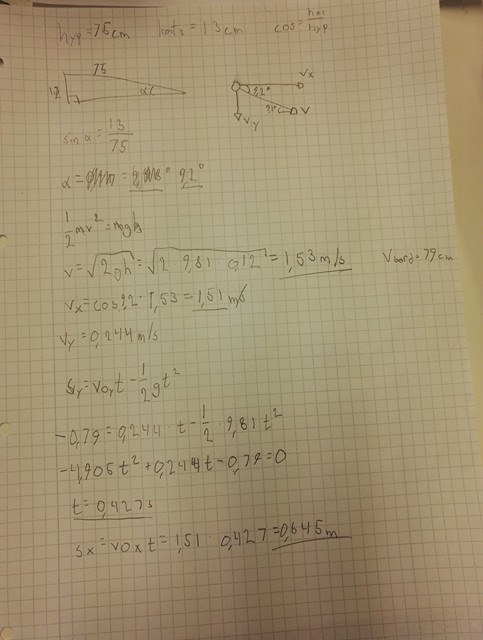 hyp=75cm = 13cm cos= hos/hyp
75
α
Vx
22°
V
Vy
sin α = 13/75
α = 9,2°
1/2 mv² = mgh
v = √2gh = √2 9,81 0,12 = 1,53 m/s = 79 cm
Vx = cos 9,2 · 1,53 = 1,51 m/s
Vy = 0,244 m/s
Sy = V0y t - 1/2 g t²
-0,79 = 0,244 · t - 1/2 · 9,81 t²
-4,905 t² + 0,244 t - 0,79 = 0
t = 0,427 s
Sx = V0x t = 1,51 · 0,427 = 0,645 m